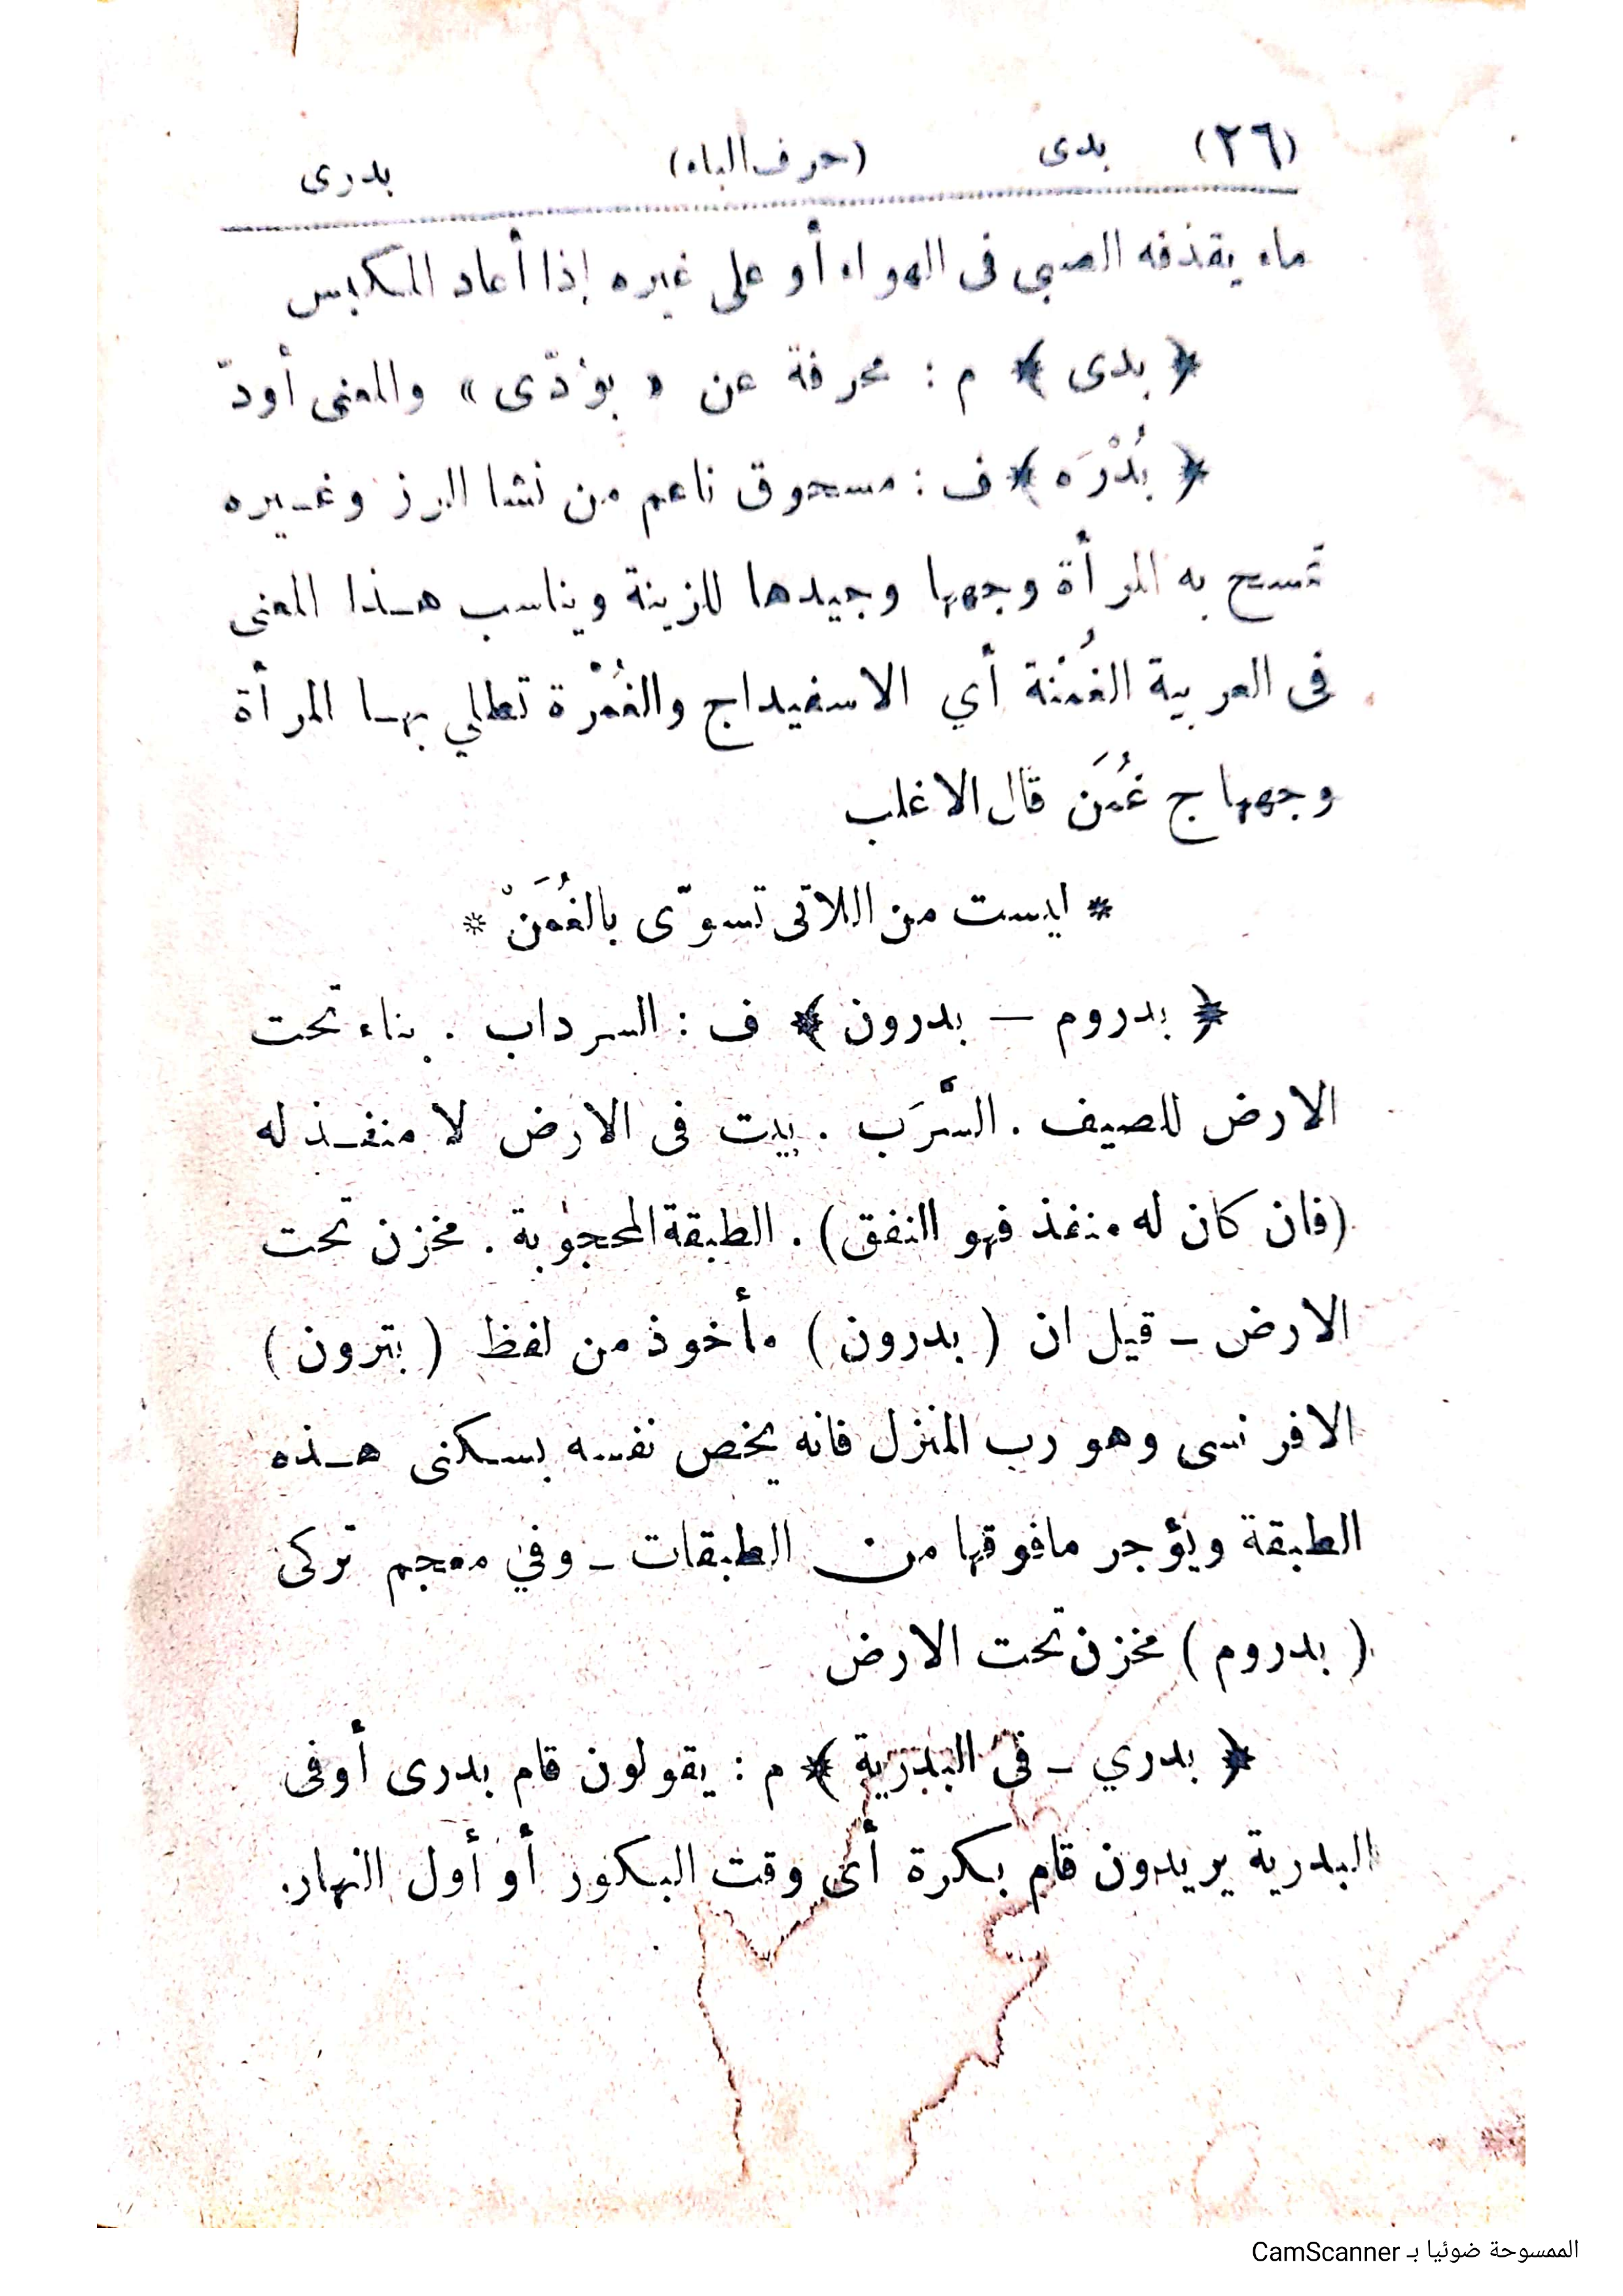 (٢٦) بدى (حرف الباء) بدرى
ماء يقذفه الصبى فى الهواء أو على غيره إذا أعاد المكبس
﴿ بدى ﴾ م : محرفة عن « بوُدّى » والمعنى أودّ
﴿ بُدْرَه ﴾ ف : مسحوق ناعم من نشا الرز وغيره
تمسح به المرأة وجهها وجيدها للزينة ويناسب هذا المعنى
فى العربية الغُمْنة أي الاسفيداج والغُمْرة تطلي بها المرأة
وجهها ج غُمَن قال الاغلب
* ليست من اللاتى تسوّى بالغُمَنْ *
﴿ بدروم — بدرون ﴾ ف : السرداب . بناء تحت
الارض للصيف . السَّرَب . بيت فى الارض لا منفذ له
(فان كان له منفذ فهو النفق) . الطبقة المحجوبة . مخزن تحت
الارض ـ قيل ان ( بدرون ) مأخوذ من لفظ ( بترون )
الافرنسى وهو رب المنزل فانه يخص نفسه بسكنى هذه
الطبقة ويؤجر مافوقها من الطبقات ـ وفي معجم تركى
( بدروم ) مخزن تحت الارض
﴿ بدري ـ فى البدرية ﴾ م : يقولون قام بدرى أوفى
البدرية يريدون قام بكرة أى وقت البكور أو أول النهار.
الممسوحة ضوئيا بـ CamScanner